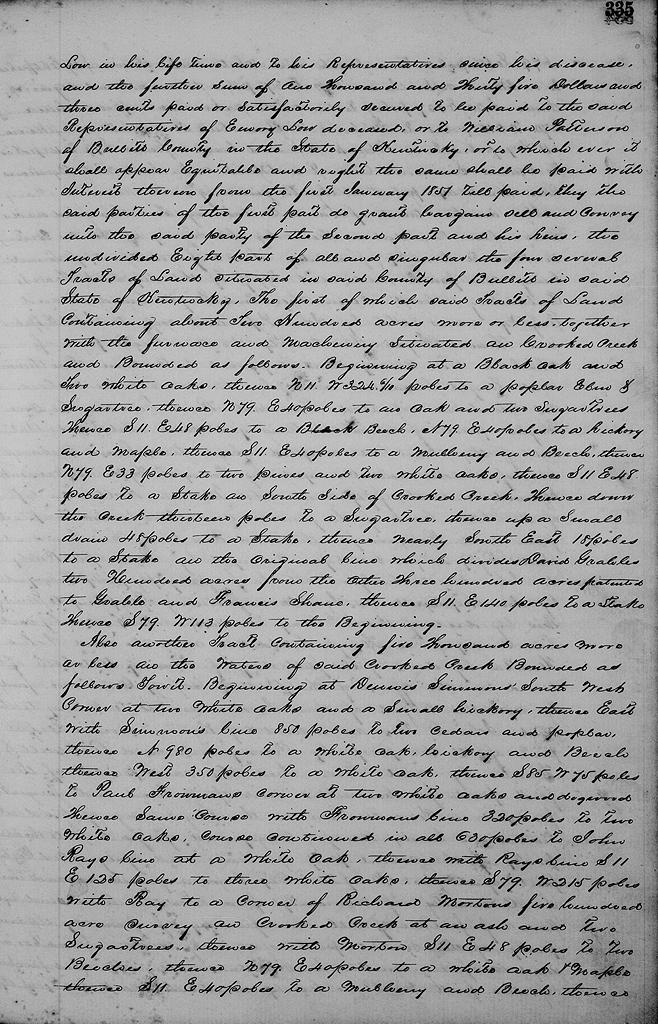 335
Low in his life time and to his Representatives since his discease,
and the further Sum of One Thousand and Thirty five Dollars and
three cents paid or Satisfactorily secured to be paid to the said
Representatives of Emory Low deceased, or to William Patterson
of Bullitt County in the State of Kentucky, or to which ever it
shall appear Equitable and right the same shall be paid with
interest thereon from the first January 1851 till paid, they the
said parties of the first part do grant bargain sell and convey
unto the said party of the Second part and his heirs, the
undivided Eight part of all and singular the four several
Tracts of Land situated in said County of Bullitt in said
State of Kentucky, The first of which said Tracts of Land
Containing about Two Hundred acres more or less, together
with the furnace and Machinery Situated on Crooked Creek
and Bounded as follows. Beginning at a Black oak and
Two white oaks, thence N 11. W 324 4/10 poles to a poplar Elm &
Sugartree, thence N 79. E 40 poles to an oak and two Sugartrees
Thence S 11. E 48 poles to a Black Beech, N 79 E 40 poles to a Hickory
and Maple, thence S 11. E 40 poles to a Mulberry and Beech, thence
N 79. E 33 poles to two pines and two white oaks, thence S 11 E 48
poles to a Stake on South Side of Crooked Creek. Thence down
the Creek thirteen poles to a Sugartree, thence up a Small
drain 45 poles to a Stake, thence nearly South East 15 poles
to a Stake on the Original line which divides David Grables
two Hundred acres from the other Three hundred acres patented
to Grable and Francis Shane, thence S 11. E 140 poles to a Stake
Thence S 79. W 113 poles to the Beginning.
Also another Tract Containing five Thousand acres more
or less on the Waters of said Crooked Creek Bounded as
follows Towit. Beginning at Dennis Simmons' South West
Corner at two White oaks and a Small hickory, thence East
with Simmons line 850 poles to two Cedars and poplar,
thence N 980 poles to a white oak, hickory and Beech
thence West 350 poles to a white oak, thence S 85 W 75 poles
to Paul Frowmans Corner at two white oaks and dogwood
Thence Same Course with Frowmans line 320 poles to two
White oaks, Course continued in all 630 poles to John
Rays line at a White oak, thence with Rays line S 11
E 125 poles to three white oaks, thence S 79. W 215 poles
with Ray to a Corner of Richard Mortons five hundred
acre Survey on Crooked Creek at an ash and two
Sugartrees, thence with Morton S 11 E 48 poles to two
Beeches, thence N 79. E 40 poles to a white oak & Maple
thence S 11. E 40 poles to a Mulberry and Beech, thence